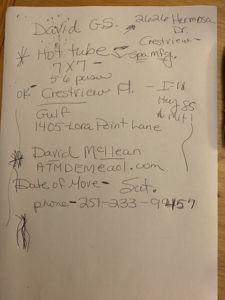 David GS. 2626 Hermosa Dr.
Crestview
* Hot tube - Spa mfg.
7 X 7 -
5-6 person
OK - Crestview Pl. - I-10
Hwy 85
Gulf
1405 - Lora Point Lane
* David McLlean
ATMDEMEaol.com
Date of Move - Sat.
phone - 251-233-99457